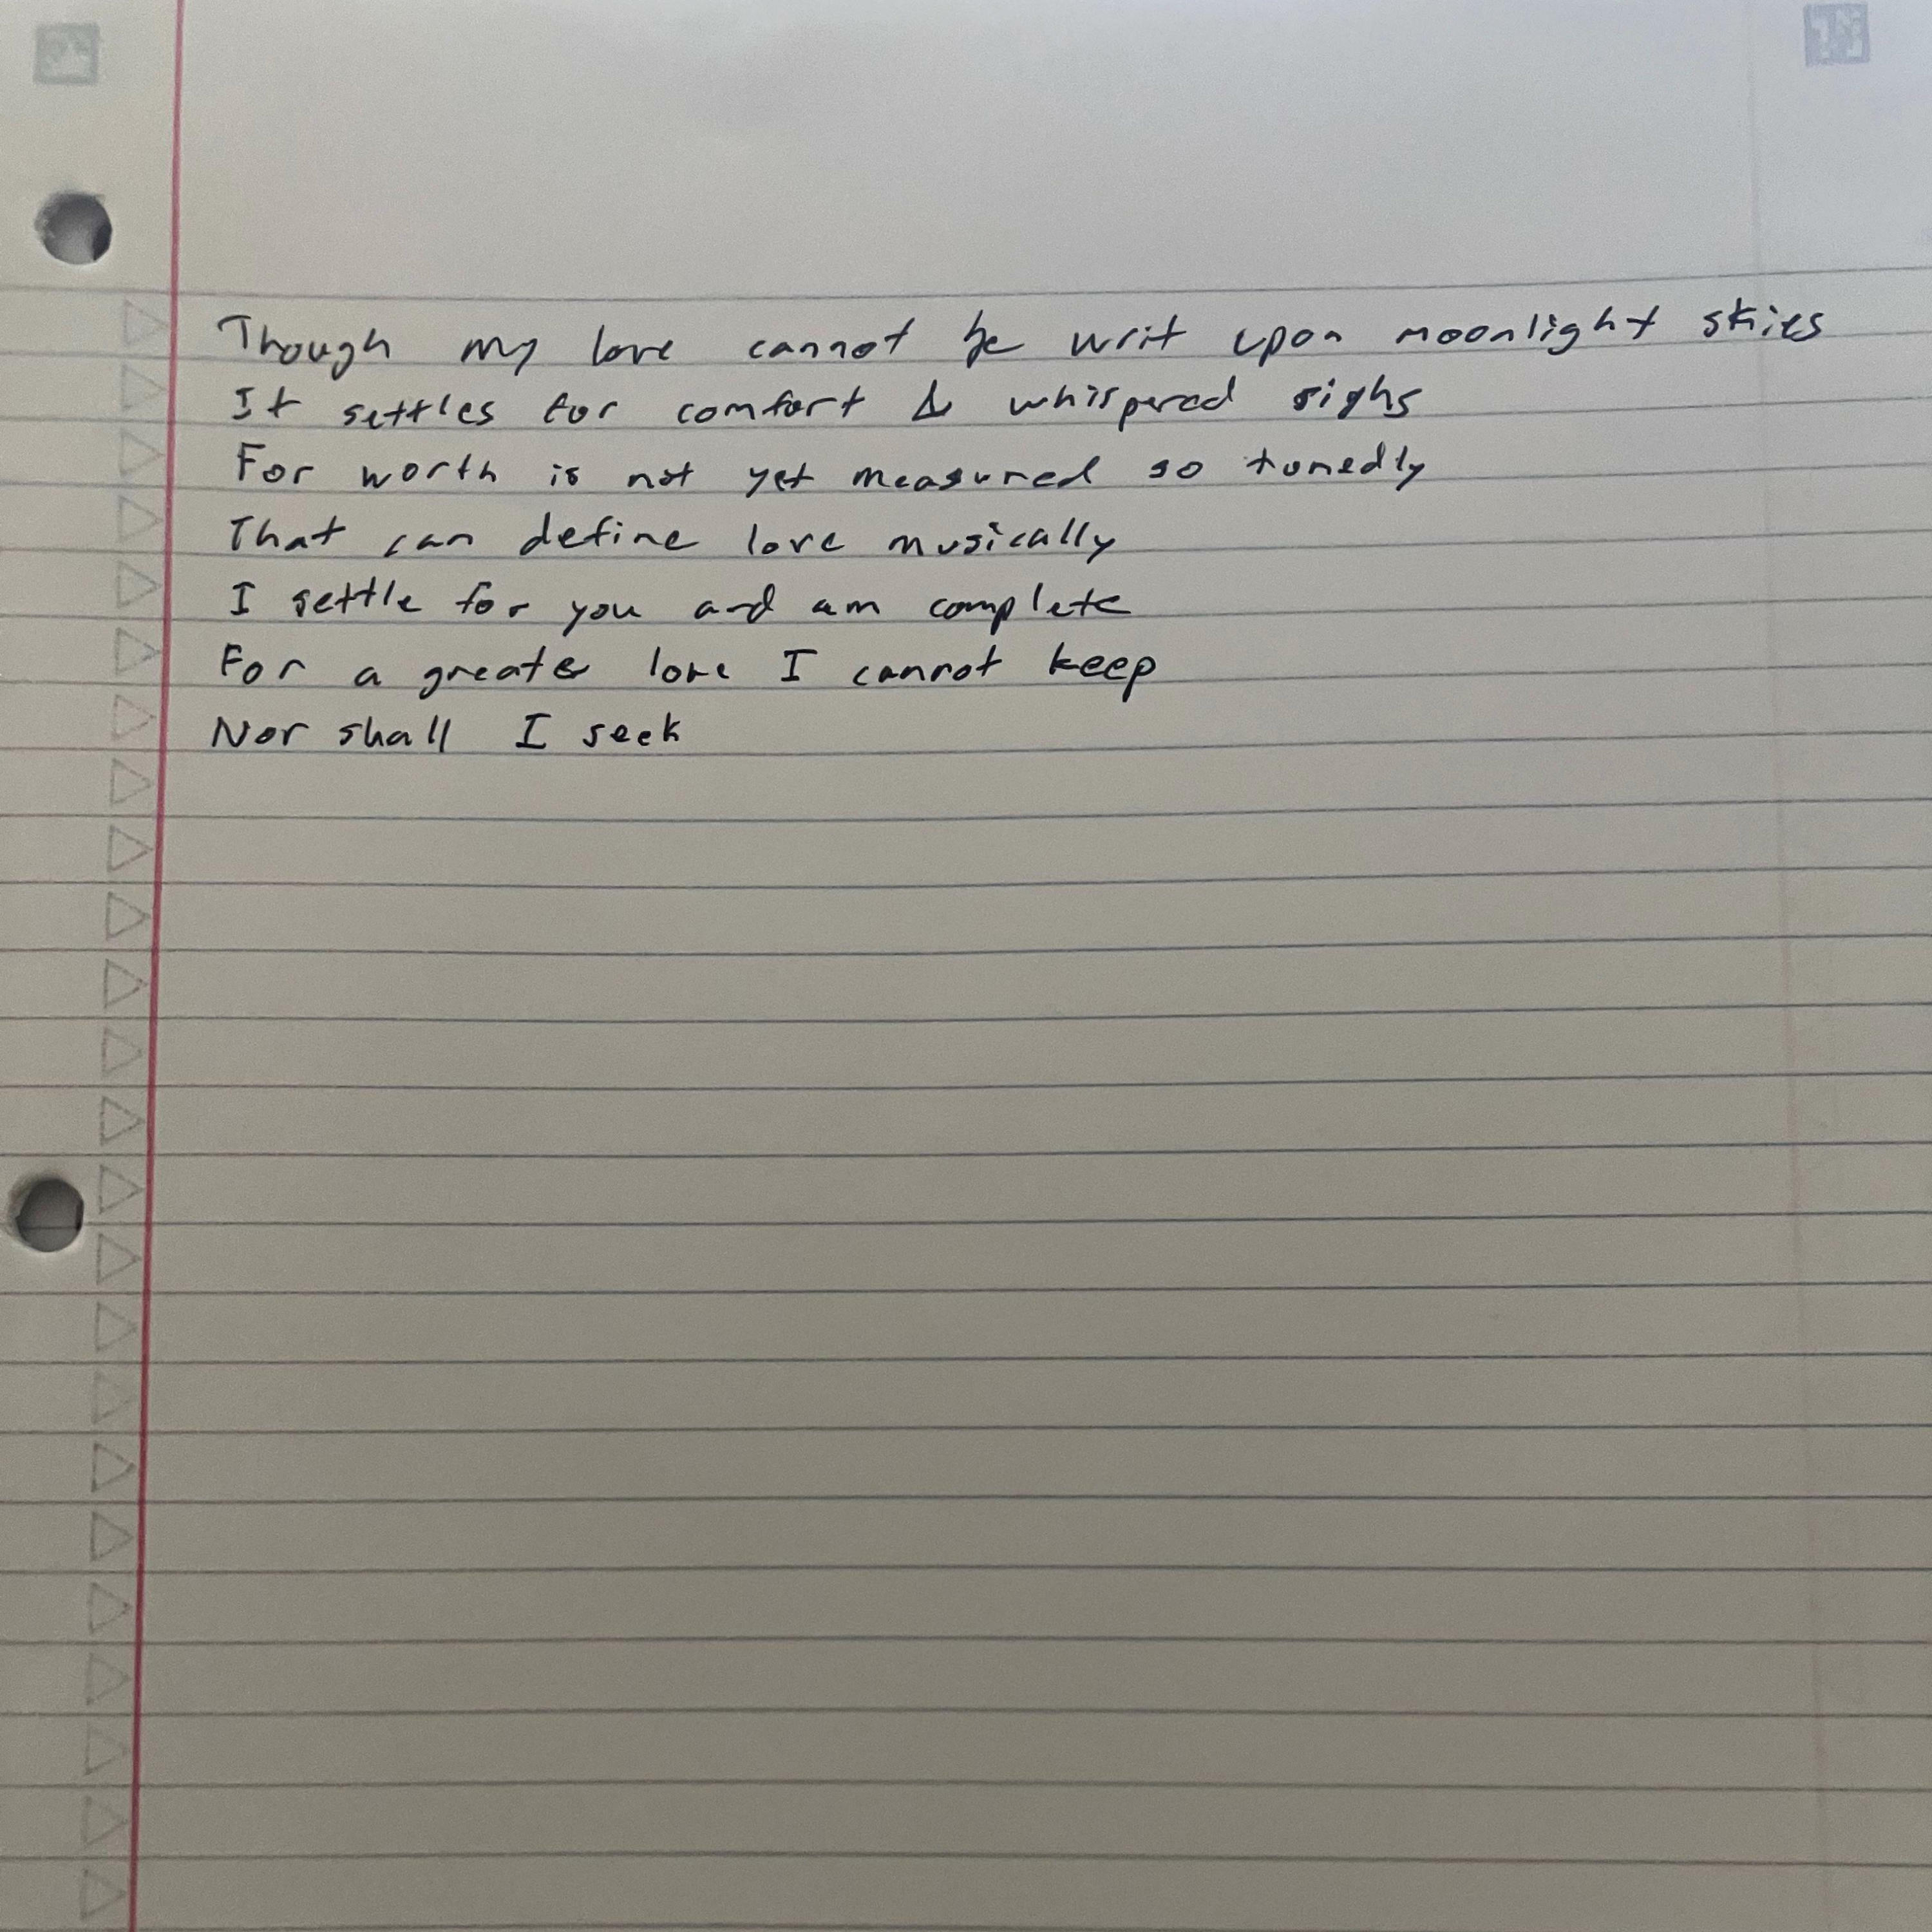 Though my love cannot be writ upon moonlight skies
It settles for comfort & whispered sighs
For worth is not yet measured so tunedly
That can define love musically
I settle for you and am complete
For a greater love I cannot keep
Nor shall I seek